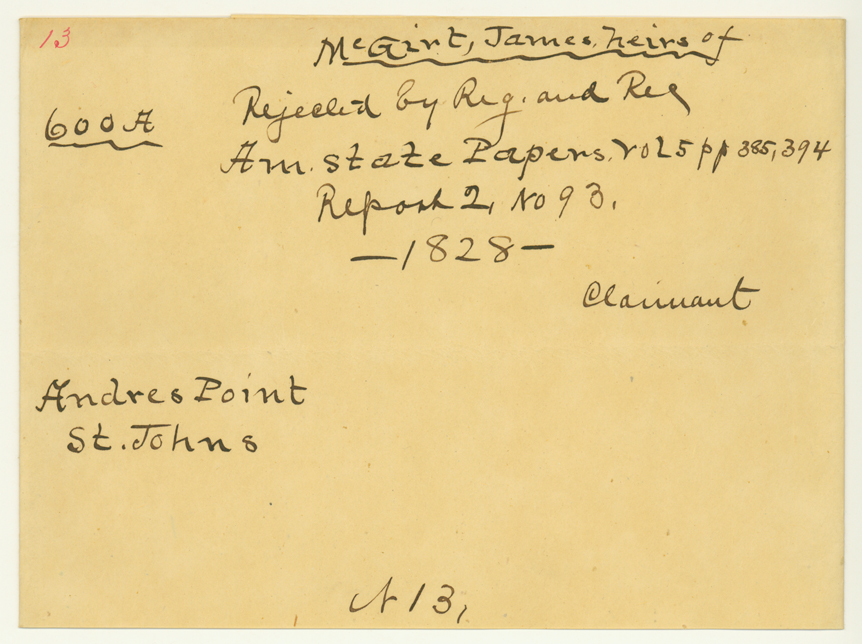 13
McGirt, James, heirs of
600 A
Rejected by Reg. and Rec
Am. State Papers. Vol 5 pp 385, 394
Report 2, No 93.
—1828—
Claimant
Andres Point
St. Johns
N 13,